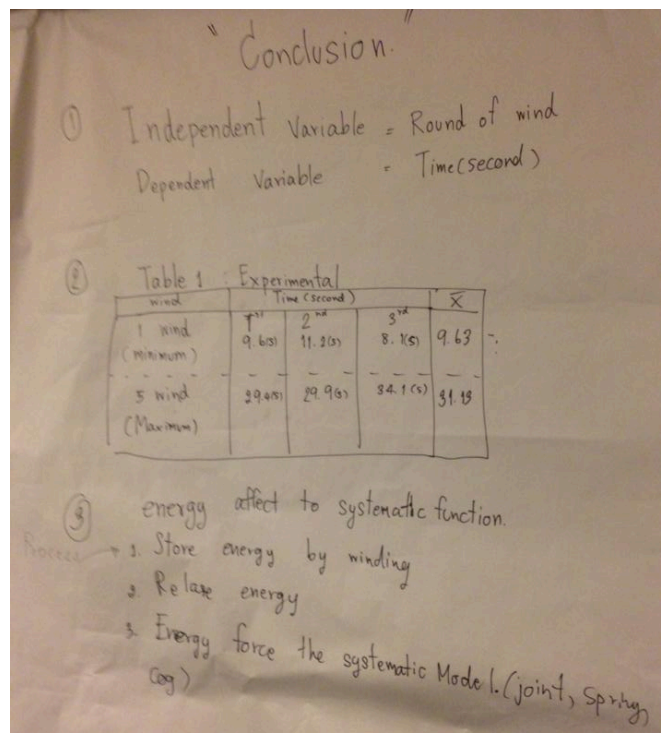 "Conclusion."
① Independent Variable = Round of wind
Dependent Variable = Time(second)
② Table 1 : Experimental
wind Time (second) X̄
1st 2nd 3rd
1 wind 9.6(s) 11.2(s) 8.1(s) 9.63
(minimum)
5 wind 29.4(s) 29.9(s) 34.1(s) 31.13
(Maximum)
③ energy affect to systematic function.
Process → 1. Store energy by winding
2. Relase energy
3. Energy force the systematic Model. (joint, Spring,
Cog)